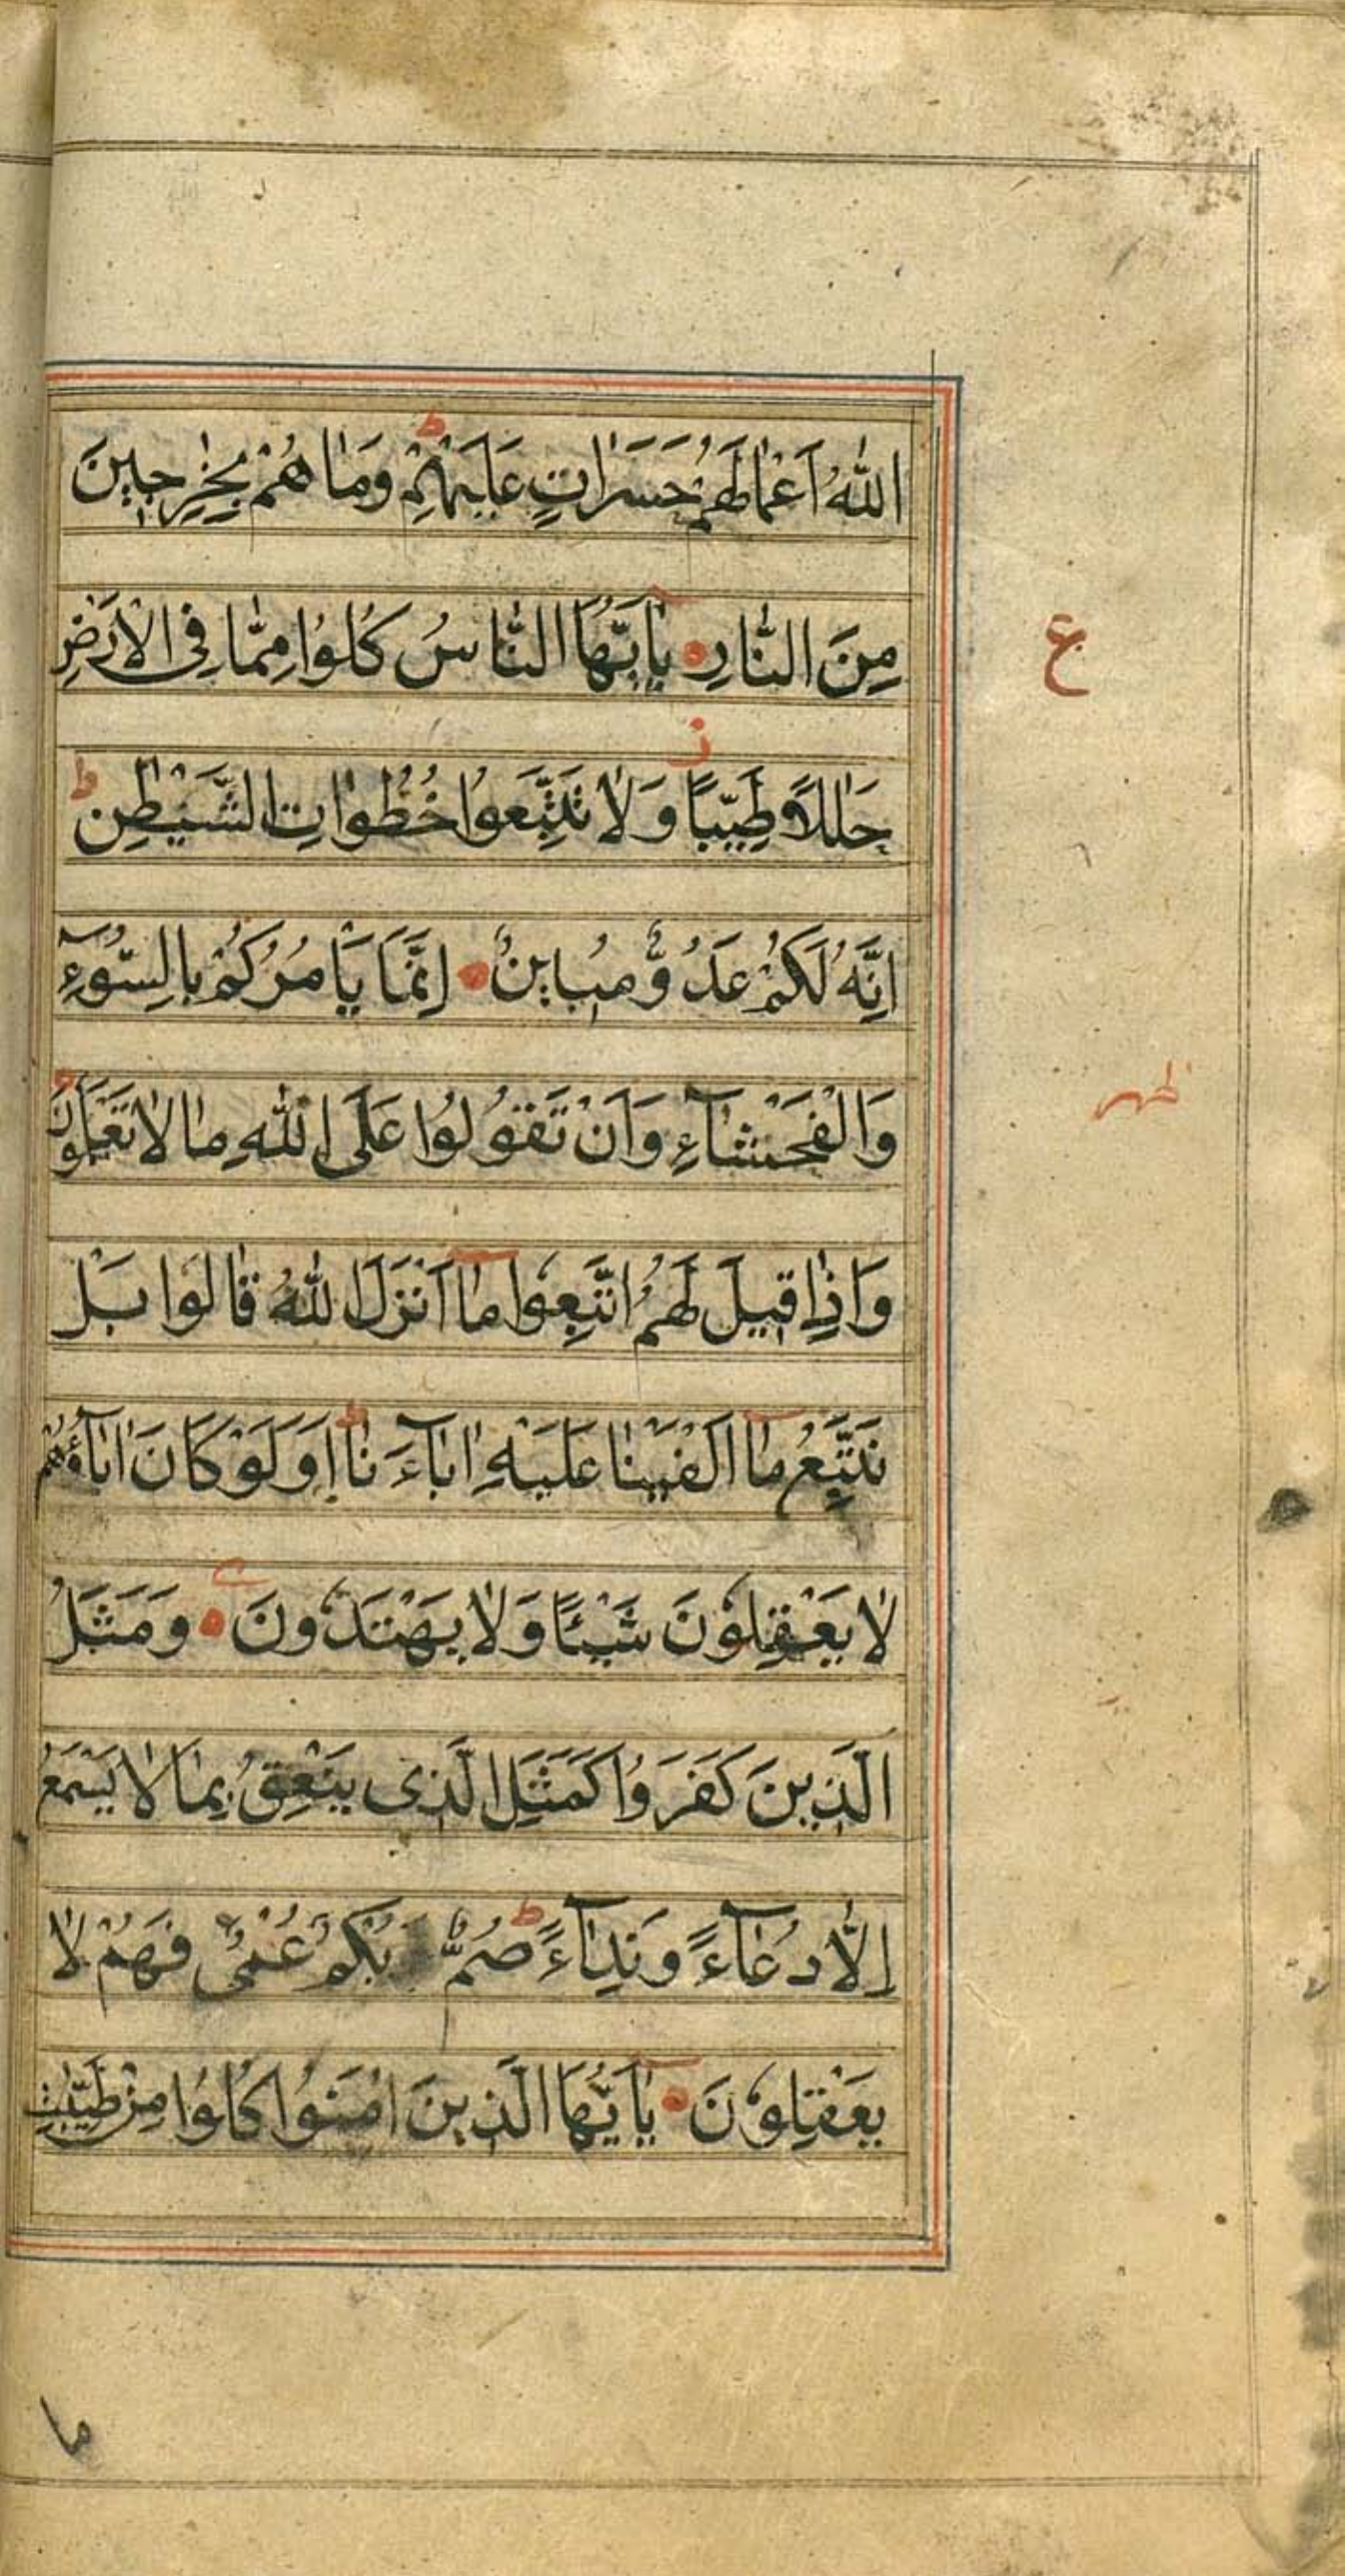 اللّٰهُ اَعْمَالَهُمْ حَسَرَاتٍ عَلَيْهِمْ ط وَمَا هُمْ بِخٰرِجِينَ
مِنَ النَّارِ يٰٓاَيُّهَا النَّاسُ كُلُوا مِمَّا فِى الْاَرْضِ
ع
حَلٰلًا طَيِّبًا ز وَلَا تَتَّبِعُوا خُطُوَاتِ الشَّيْطٰنِ ط
اِنَّهُ لَكُمْ عَدُوٌّ مُبِينٌ اِنَّمَا يَاْمُرُكُمْ بِالسُّوٓءِ
وَالْفَحْشَآءِ وَاَنْ تَقُولُوا عَلَى اللّٰهِ مَا لَا تَعْلَمُونَ
ظهر
وَاِذَا قِيلَ لَهُمُ اتَّبِعُوا مَآ اَنْزَلَ اللّٰهُ قَالُوا بَلْ
نَتَّبِعُ مَآ اَلْفَيْنَا عَلَيْهِ اٰبَآءَنَا ط اَوَلَوْ كَانَ اٰبَآؤُهُمْ
لَا يَعْقِلُوْنَ شَيْئًا وَلَا يَهْتَدُونَ وَمَثَلُ
الَّذِينَ كَفَرُوا كَمَثَلِ الَّذِى يَنْعِقُ بِمَا لَا يَسْمَعُ
اِلَّا دُعَآءً وَنِدَآءً ط صُمٌّ بُكْمٌ عُمْىٌ فَهُمْ لَا
يَعْقِلُوْنَ يٰٓاَيُّهَا الَّذِينَ اٰمَنُوا كُلُوا مِنْ طَيِّبٰتِ
ما